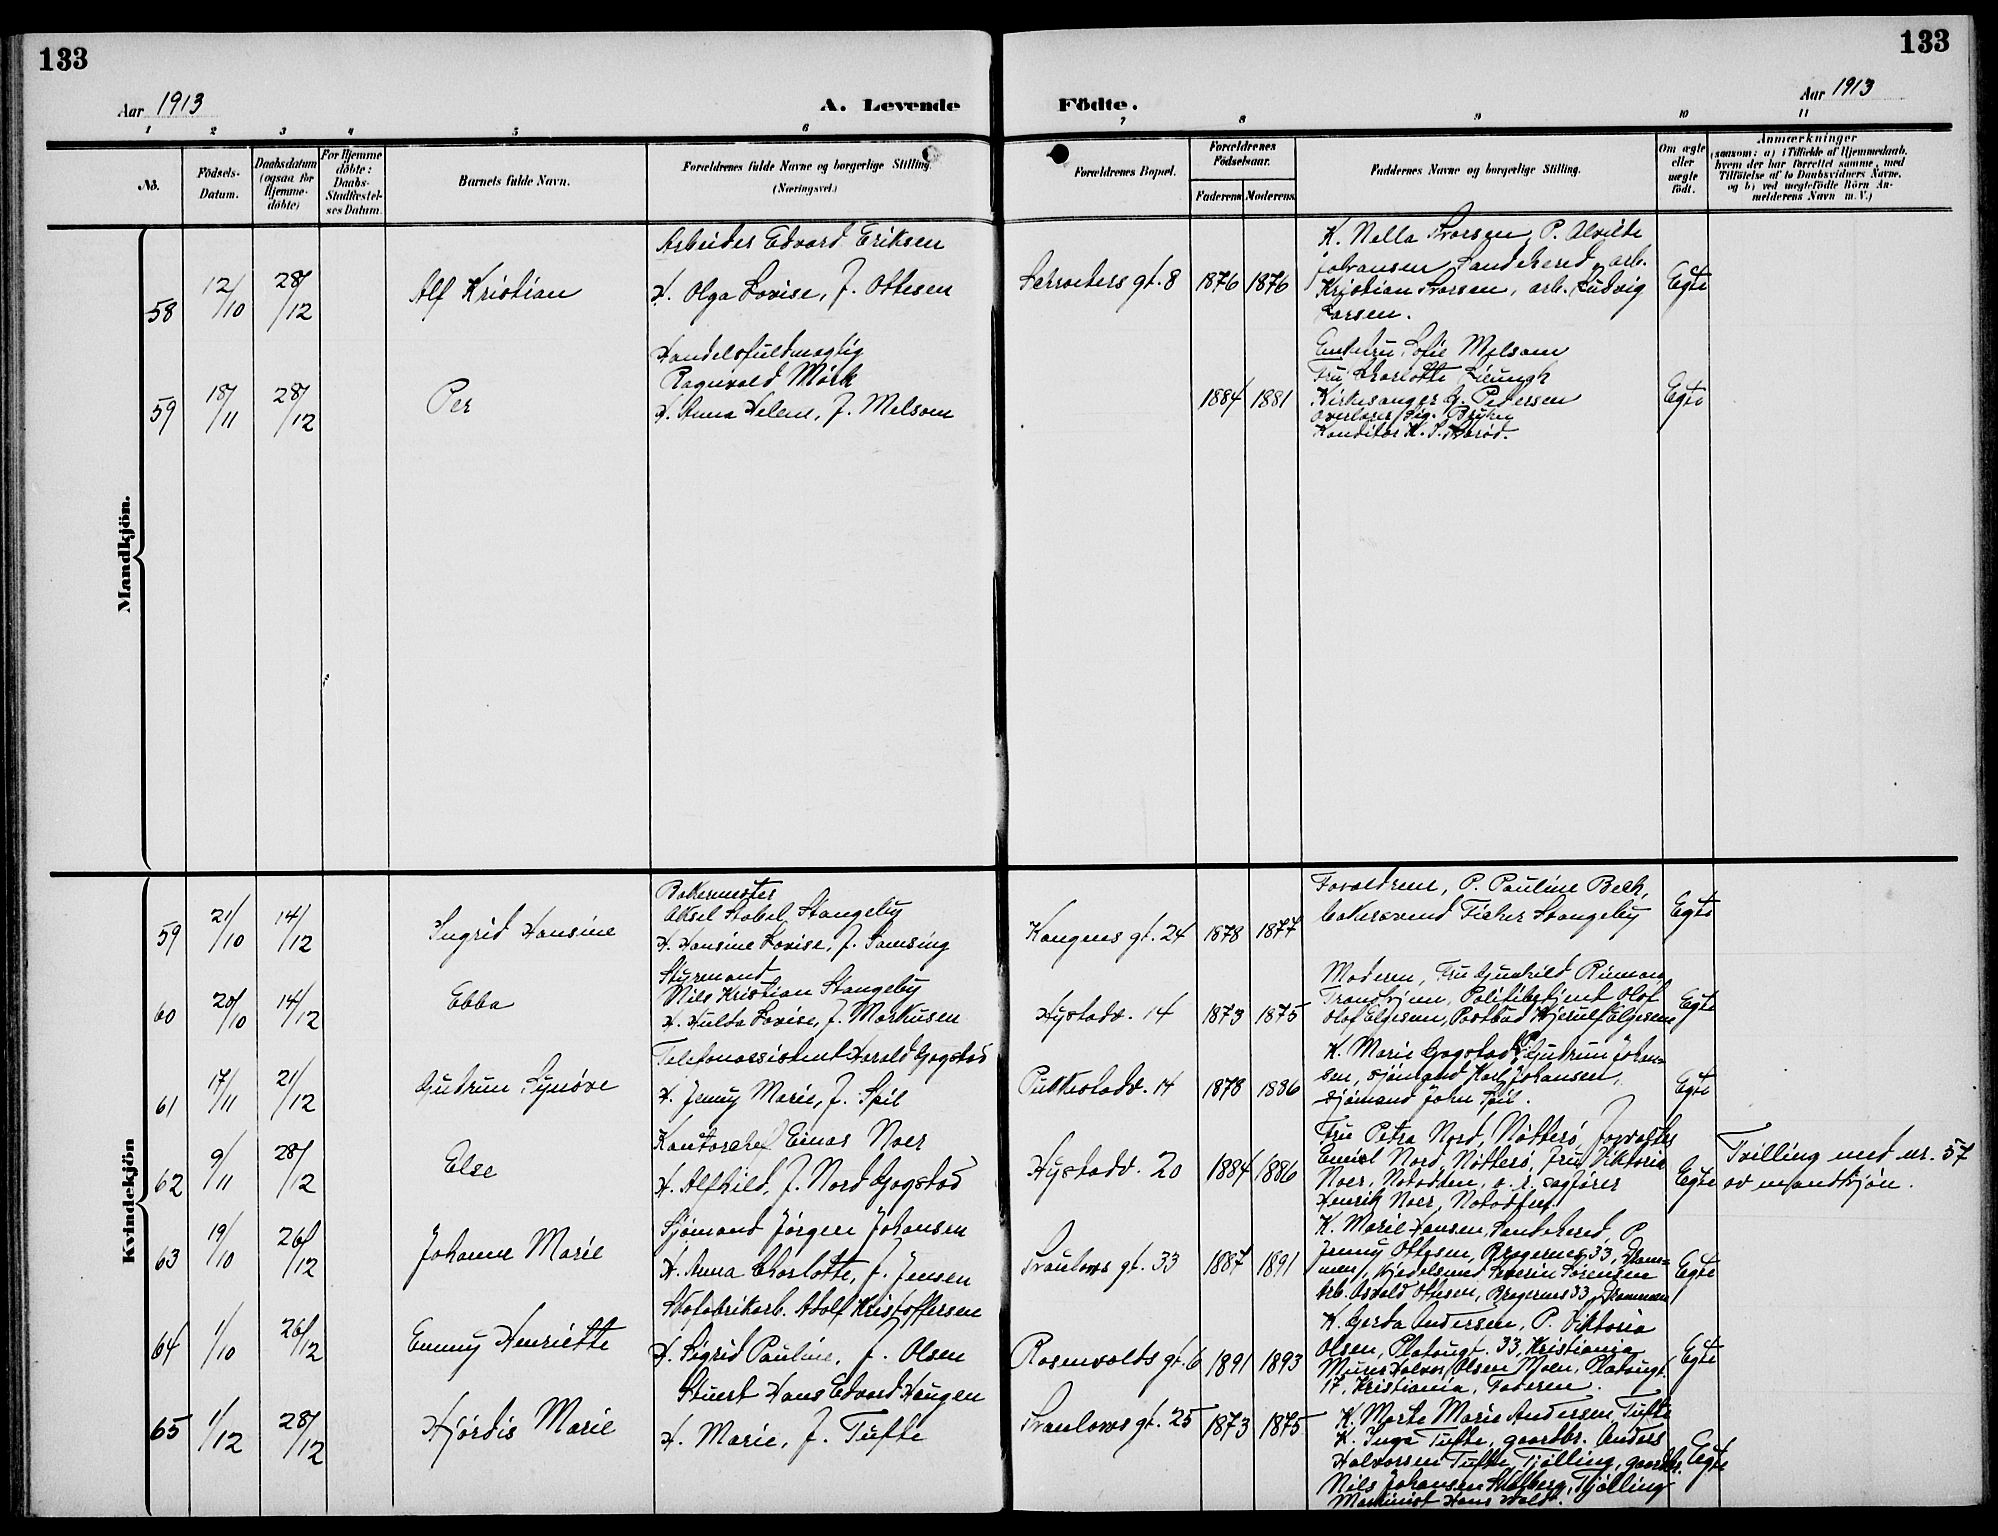 133
133
Aar 1913
A. Levende
Födte.
Aar 1913
1 2 3 4 5 6 7 8 9 10 11
No.
Födsels-
Datum.
Daabsdatum
(ogsaa for
Hjemme-
døbte)
For Hjemme
døbte:
Daabs-
Stadfæstel-
ses Datum.
Barnets fulde Navn.
Forældrenes fulde Navne og borgerlige Stilling.
(Næringsvei.)
Forældrenes Bopæl.
Forældrenes
Födselsaar.
Faderens. Moderens.
Faddernes Navne og borgerlige Stilling.
Om ægte
eller
uægte
født.
Anmærkninger
(saasom: a) i Tilfælde af Hjemmedaab,
hvem der har forrettet samme, med
Tilføielse af to Daabsvidners Navne,
og b) ved uægtefødte Börn An-
melderens Navn m. V.)
Mandkjön.
58
12/10
28/12
Alf Kristian
Arbeider Edvard Eriksen
H. Olga Lovise, f. Ottesen
Schrøeters gt. 8
1876
1876
K. Nella Svarsen, P. Alvilde
Johansen, Sandehered, arb.
Kristian Svarsen, arb. Ludvig
Larsen.
Egte
59
18/11
28/12
Per
Handelsfuldmægtig
Ragnvald Mørk
H. Anna Helene, f. Melsom
1884
1881
Enkefru Sofie Melsom
Fru Charlotte
Kirkesanger Petersen
Overlærer Sig.
Konditor K. S.
Egte
Kvindekjön
59
21/10
14/12
Ingrid Hansine
Bakermester
Aksel Stabel Stangeby
H. Hansine Lovise, f. Samsing
Kongens gt. 24
1878
1877
Forældrene, P. Pauline Beck,
bakersvend Ticher Stangeby
Egte
60
20/10
14/12
Ebba
Styrmand
Nils Kristian Stangeby
H. Hulda Lovise, f. Markusen
Hystadv. 14
1873
1875
Moderen, Fru Gunhild Rieman,
Trondhjem, Politibetjent Olof
Olof Elgesem, Postbud Kjerulf Elgesem
Egte
61
17/11
21/12
Gudrun Synøve
Telefonassistent Harald Gogstad
H. Jenny Marie, f. Spil
Pukkestadv. 14
1878
1886
K. Marie Gogstad, P. Gudrun Johan-
sen, sjømand Karl Johansen,
sjømand John Spil.
Egte
62
9/11
28/12
Else
Kontorchef Einar Noer
H. Alfhild, f. Nord Gogstad
Hystadv. 20
1884
1886
Fru Petra Nord, Nøtterø, Forvalter
Emil Nord, Nøtterø, Fru Viktoria
Noer, Notodden, o. r. sagfører
Henrik Noer, Notodden
Egte
Tvilling med nr. 57
av mandkjön.
63
19/10
26/12
Johanne Marie
Sjømand Jørgen Johansen
H. Anna Charlotte, f. Jensen
Svenlovs gt. 33
1887
1891
K. Marie Hansen, Sandehered, P.
Jenny Ottesen, Bragernes 33, Dram-
men, Kjedelsmed Severin Sørensen
Arb. Osvald Ottesen, Bragernes 33, Drammen
Egte
64
1/10
26/12
Emmy Henriette
Skofabrikarb. Adolf Kristoffersen
H. Sigrid Pauline, f. Olsen
Rosenvolds gt. 6
1891
1893
K. Gerda Andersen, P. Viktoria
Olsen, Platougt. 33, Kristiania
Murer Halvor Olsen Moen, Platougt.
17, Kristiania, Faderen.
Egte
65
1/12
28/12
Hjørdis Marie
Stuert Hans Edvard Haugen
H. Marie, f. Tufte
Svenlovs gt. 25
1873
1875
K. Marte Marie Andersen Tufte
K. Inga Tufte, gaardbr. Anders
Halvorsen Tufte, Tjølling, gaardbr.
Nils Johansen Skalberg, Tjølling
Maskinist Hans
Egte